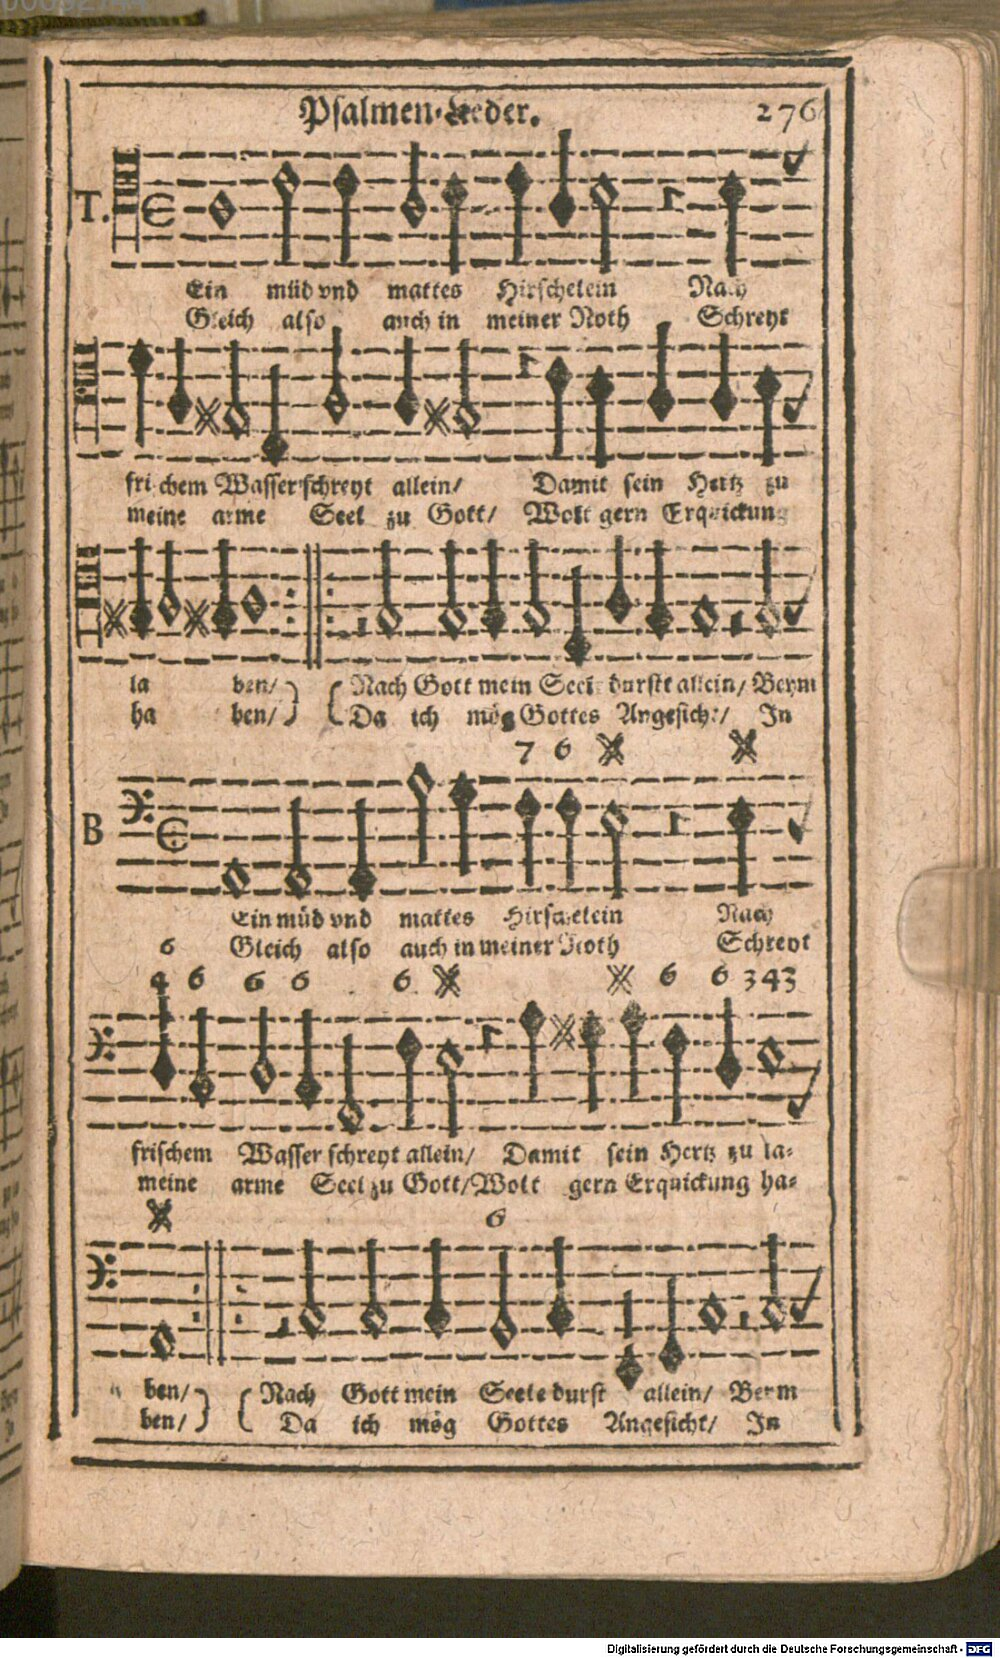 Psalmen-Lieder. 276
T.
Ein müd vnd mattes Hirschelein Nach
Gleich also auch in meiner Noth Schreyt
frischem Wasser schreyt allein/ Damit sein Hertz zu
meine arme Seel zu Gott/ Wolt gern Erquickung
la ben/ Nach Gott mein Seele durstt allein/ Beym
ha ben/ Da ich mög Gottes Angesicht/ In
7 6
B
Ein müd vnd mattes Hirschelein Nach
6 Gleich also auch in meiner Noth Schreyt
4 6 6 6 6 6 6 343
frischem Wasser schreyt allein/ Damit sein Hertz zu la-
meine arme Seel zu Gott/ Wolt gern Erquickung ha-
6
ben/ Nach Gott mein Seele durst allein/ Beym
ben/ Da ich mög Gottes Angesicht/ In
Digitalisierung gefördert durch die Deutsche Forschungsgemeinschaft - DFG